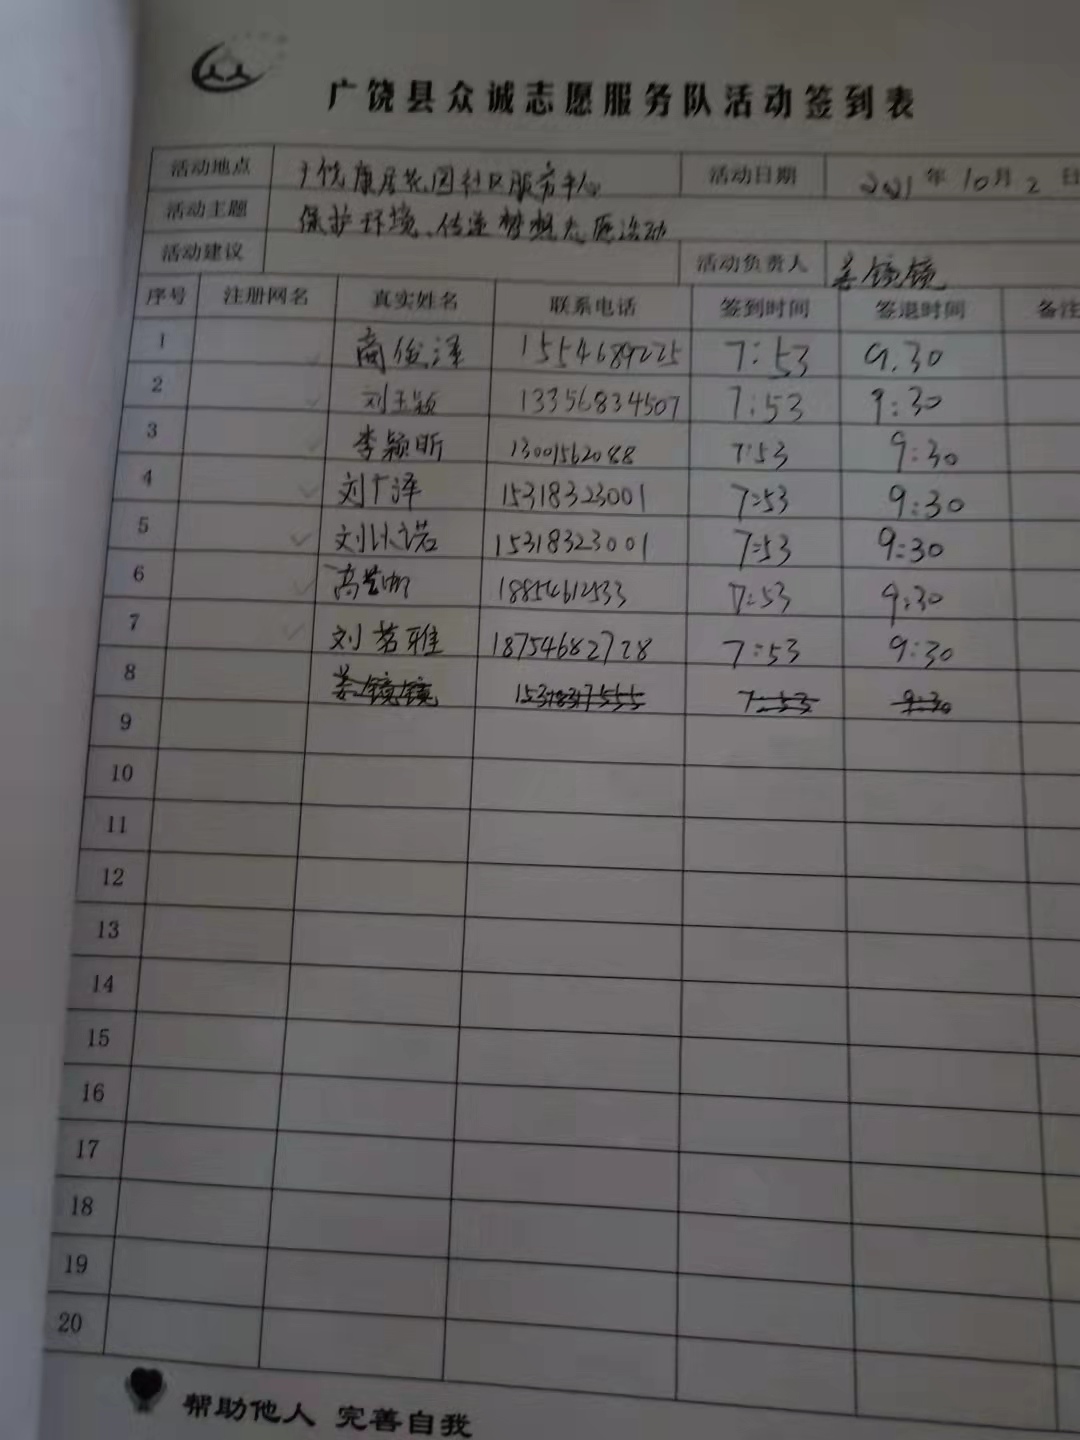 广饶县众诚志愿服务队活动签到表
活动地点 广饶康居花园社区服务中心 活动日期 2021年10月2日
活动主题 保护环境、传递梦想志愿活动
活动建议 活动负责人 姜镜镜
序号 注册网名 真实姓名 联系电话 签到时间 签退时间 备注
1 商俊泽 1554689225 7:53 9.30
2 刘玉颖 13356834507 7:53 9:30
3 李颖昕 13001562088 7:53 9:30
4 刘广泽 15318323001 7:53 9:30
5 刘以诺 15318323001 7:53 9:30
6 18854612533 7:53 9:30
7 刘茗雅 18754682728 7:53 9:30
8 姜镜镜 7:53 9:30
9
10
11
12
13
14
15
16
17
18
19
20
帮助他人 完善自我